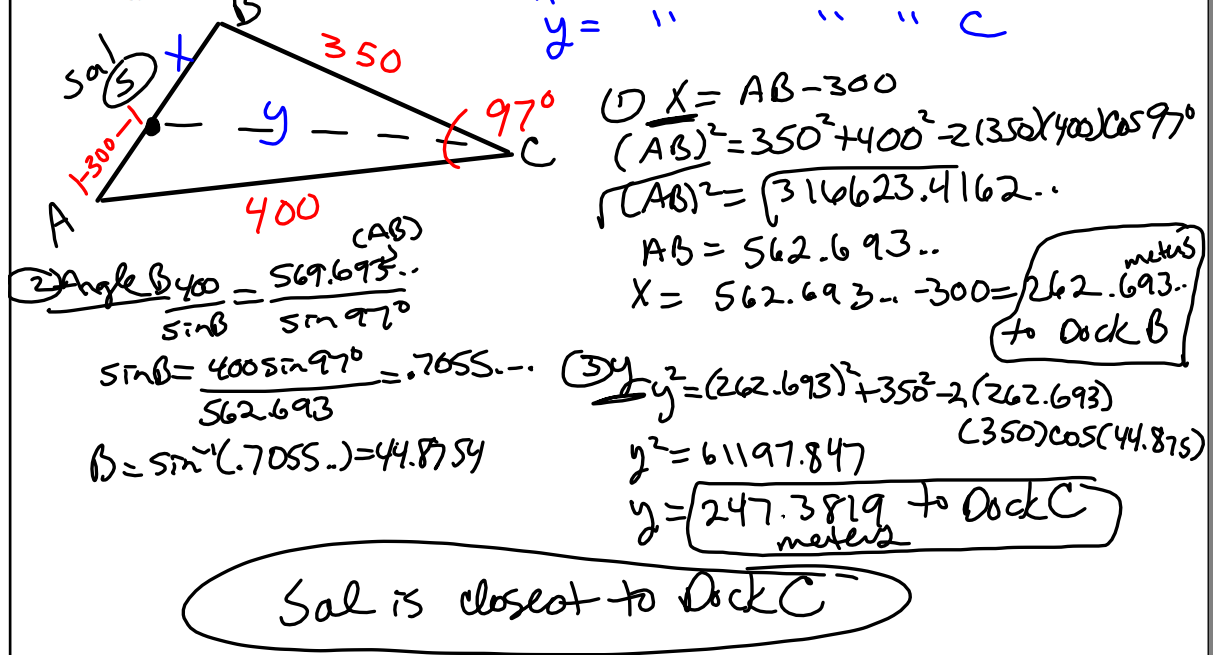 B
y = " " " C
Sal (S) x 350
y 97°
|-300-|
A 400 C
① X = AB-300
(AB)² = 350²+400²-2(350)(400)cos97°
√(AB)² = √316623.4162..
AB = 562.693..
X = 562.693.. -300 = 262.693.. meters
to Dock B
(AB)
② Angle B 400/sinB = 569.693../sin 97°
sinB = 400sin97°/562.693 = .7055...
B = sin⁻¹(.7055..)=44.8754
③ y y²=(262.693)²+350²-2(262.693)
(350)cos(44.875)
y² = 61197.847
y = 247.3819 to Dock C
meters
Sal is closest to Dock C